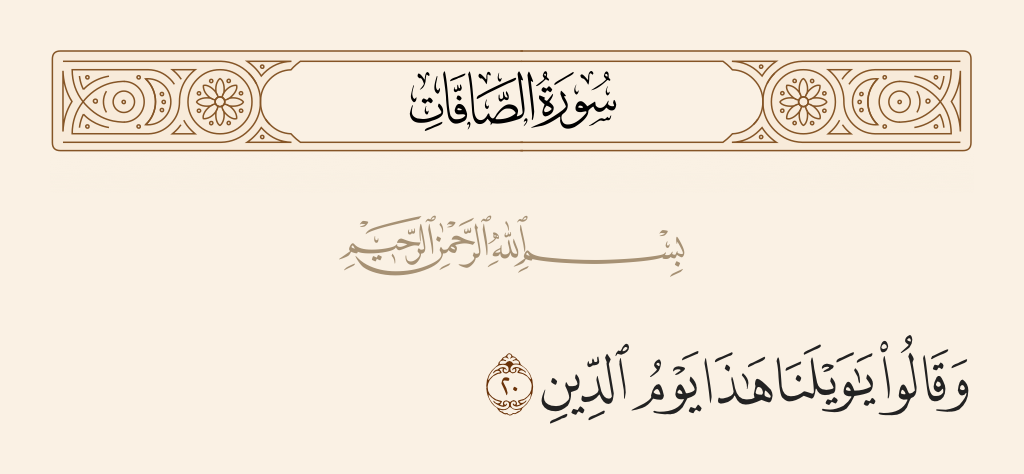 سُورَةُ الصَّافَّاتِ
بِسْمِ ٱللَّهِ ٱلرَّحْمَٰنِ ٱلرَّحِيمِ
وَقَالُوا۟ يَـٰوَيْلَنَا هَـٰذَا يَوْمُ ٱلدِّينِ ٢٠